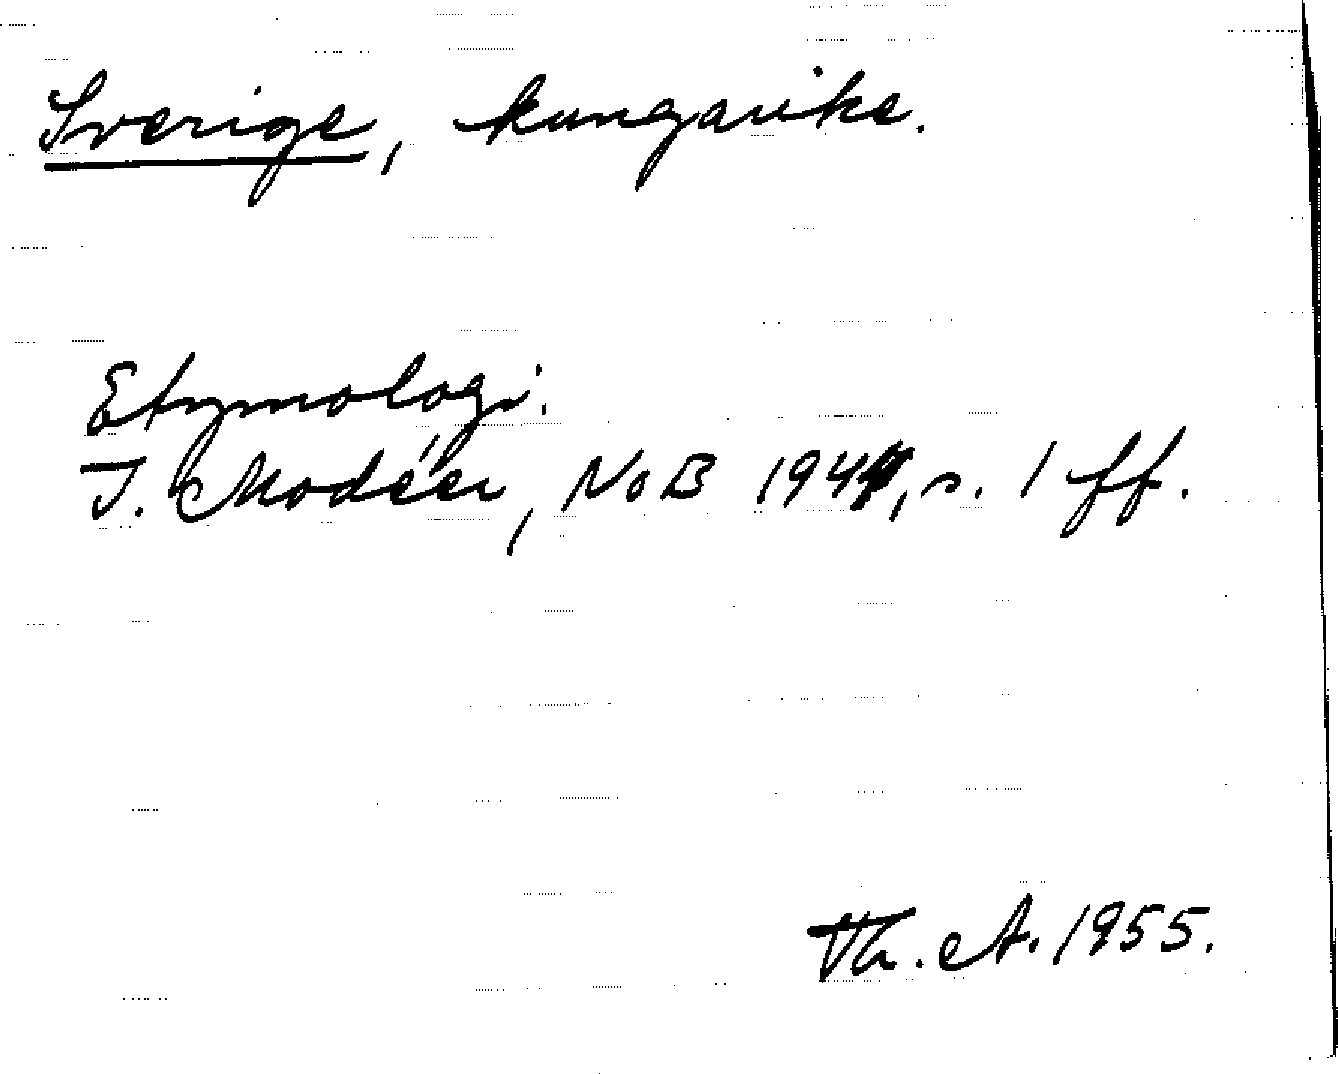 Sverige, kungarike.
Etymologi.
I. Modéer, NoB 1944, s. 1 ff.
Th. A. 1955.